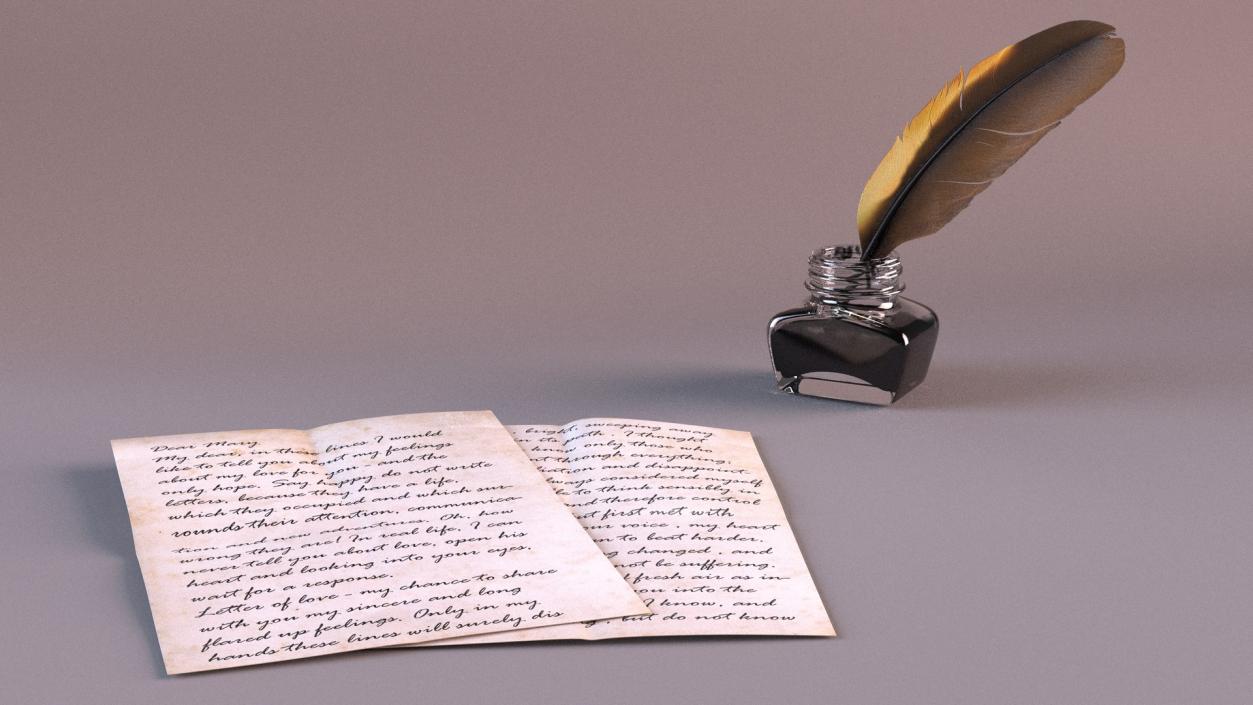 Dear Mary
My dear, in these lines I would
like to tell you about my feelings
about my love for you - and the
only hope. Say happy do not write
letters, because they have a life,
which they occupied and which sur-
rounds their attention, communica-
tion and new adventures. Oh, how
wrong they are! In real life, I can
never tell you about love, open his
heart and looking into your eyes,
wait for a response.
Letter of love - my chance to share
with you my sincere and long
flared up feelings. Only in my
hands these lines will surely dis
bright, sweeping away
with. I thought
only those who
through everything,
and disappoint-
always considered myself
to think sensibly in
and therefore control
first met with
voice, my heart
to beat harder.
changed, and
not be suffering.
fresh air as in-
into the
I know, and
but do not know